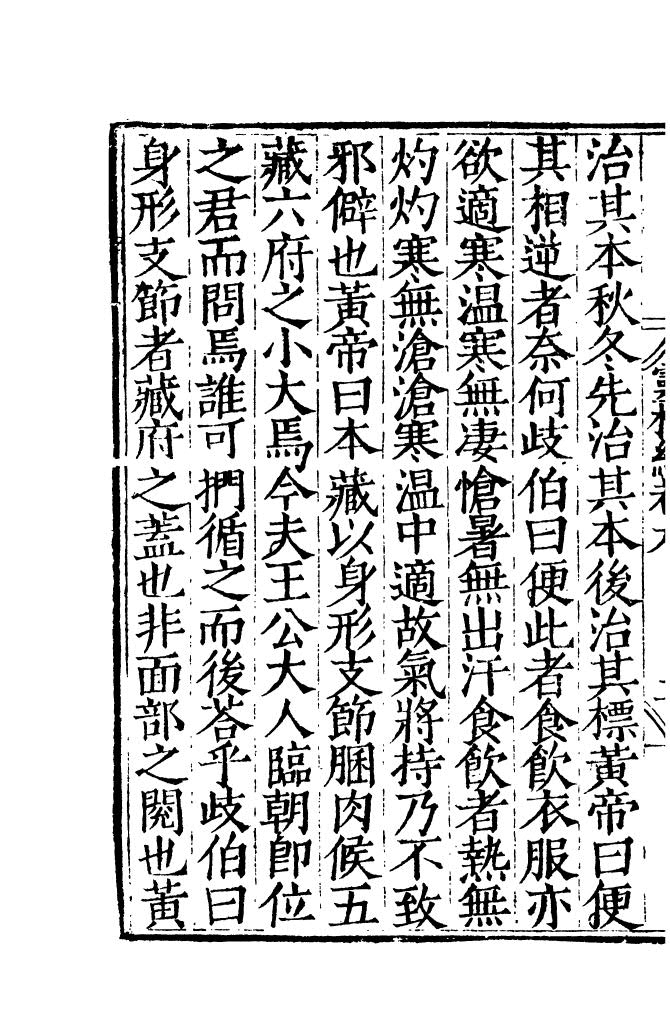 治其本秋冬先治其本後治其標黃帝曰便
其相逆者奈何歧伯曰便此者食飲衣服亦
欲適寒温寒無凄愴暑無出汗食飲者熱無
灼灼寒無滄滄寒温中適故氣將持乃不致
邪僻也黃帝曰本藏以身形支節䐃肉候五
藏六府之小大焉今夫王公大人臨朝卽位
之君而問焉誰可捫循之而後荅乎歧伯曰
身形支節者藏府之蓋也非面部之閱也黃